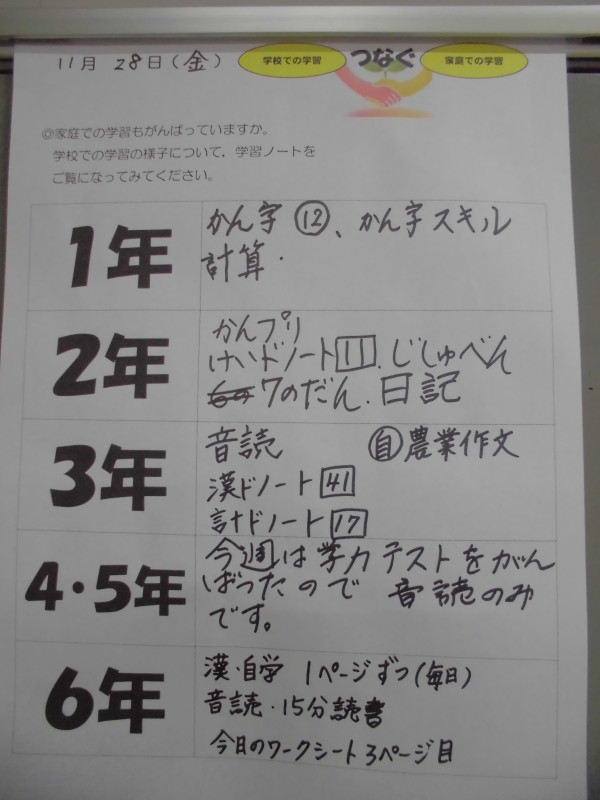 11月 28日(金)
学校での学習 つなぐ 家庭での学習
◎家庭での学習もがんばっていますか。
学校での学習の様子について，学習ノートを
ご覧になってみてください。
1年
かん字 ⑫、かん字スキル
計算.
2年
かんプリ
けいドノート 11 . じしゅべん
7のだん. 日記
3年
音読 自 農業作文
漢ドノート 41
計ドノート 17
4・5年
今週は学力テストをがん
ばったので 音読のみ
です。
6年
漢・自学 1ページずつ(毎日)
音読・15分読書
今日のワークシート3ページ目